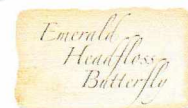 Emerald
Headfloss
Butterfly